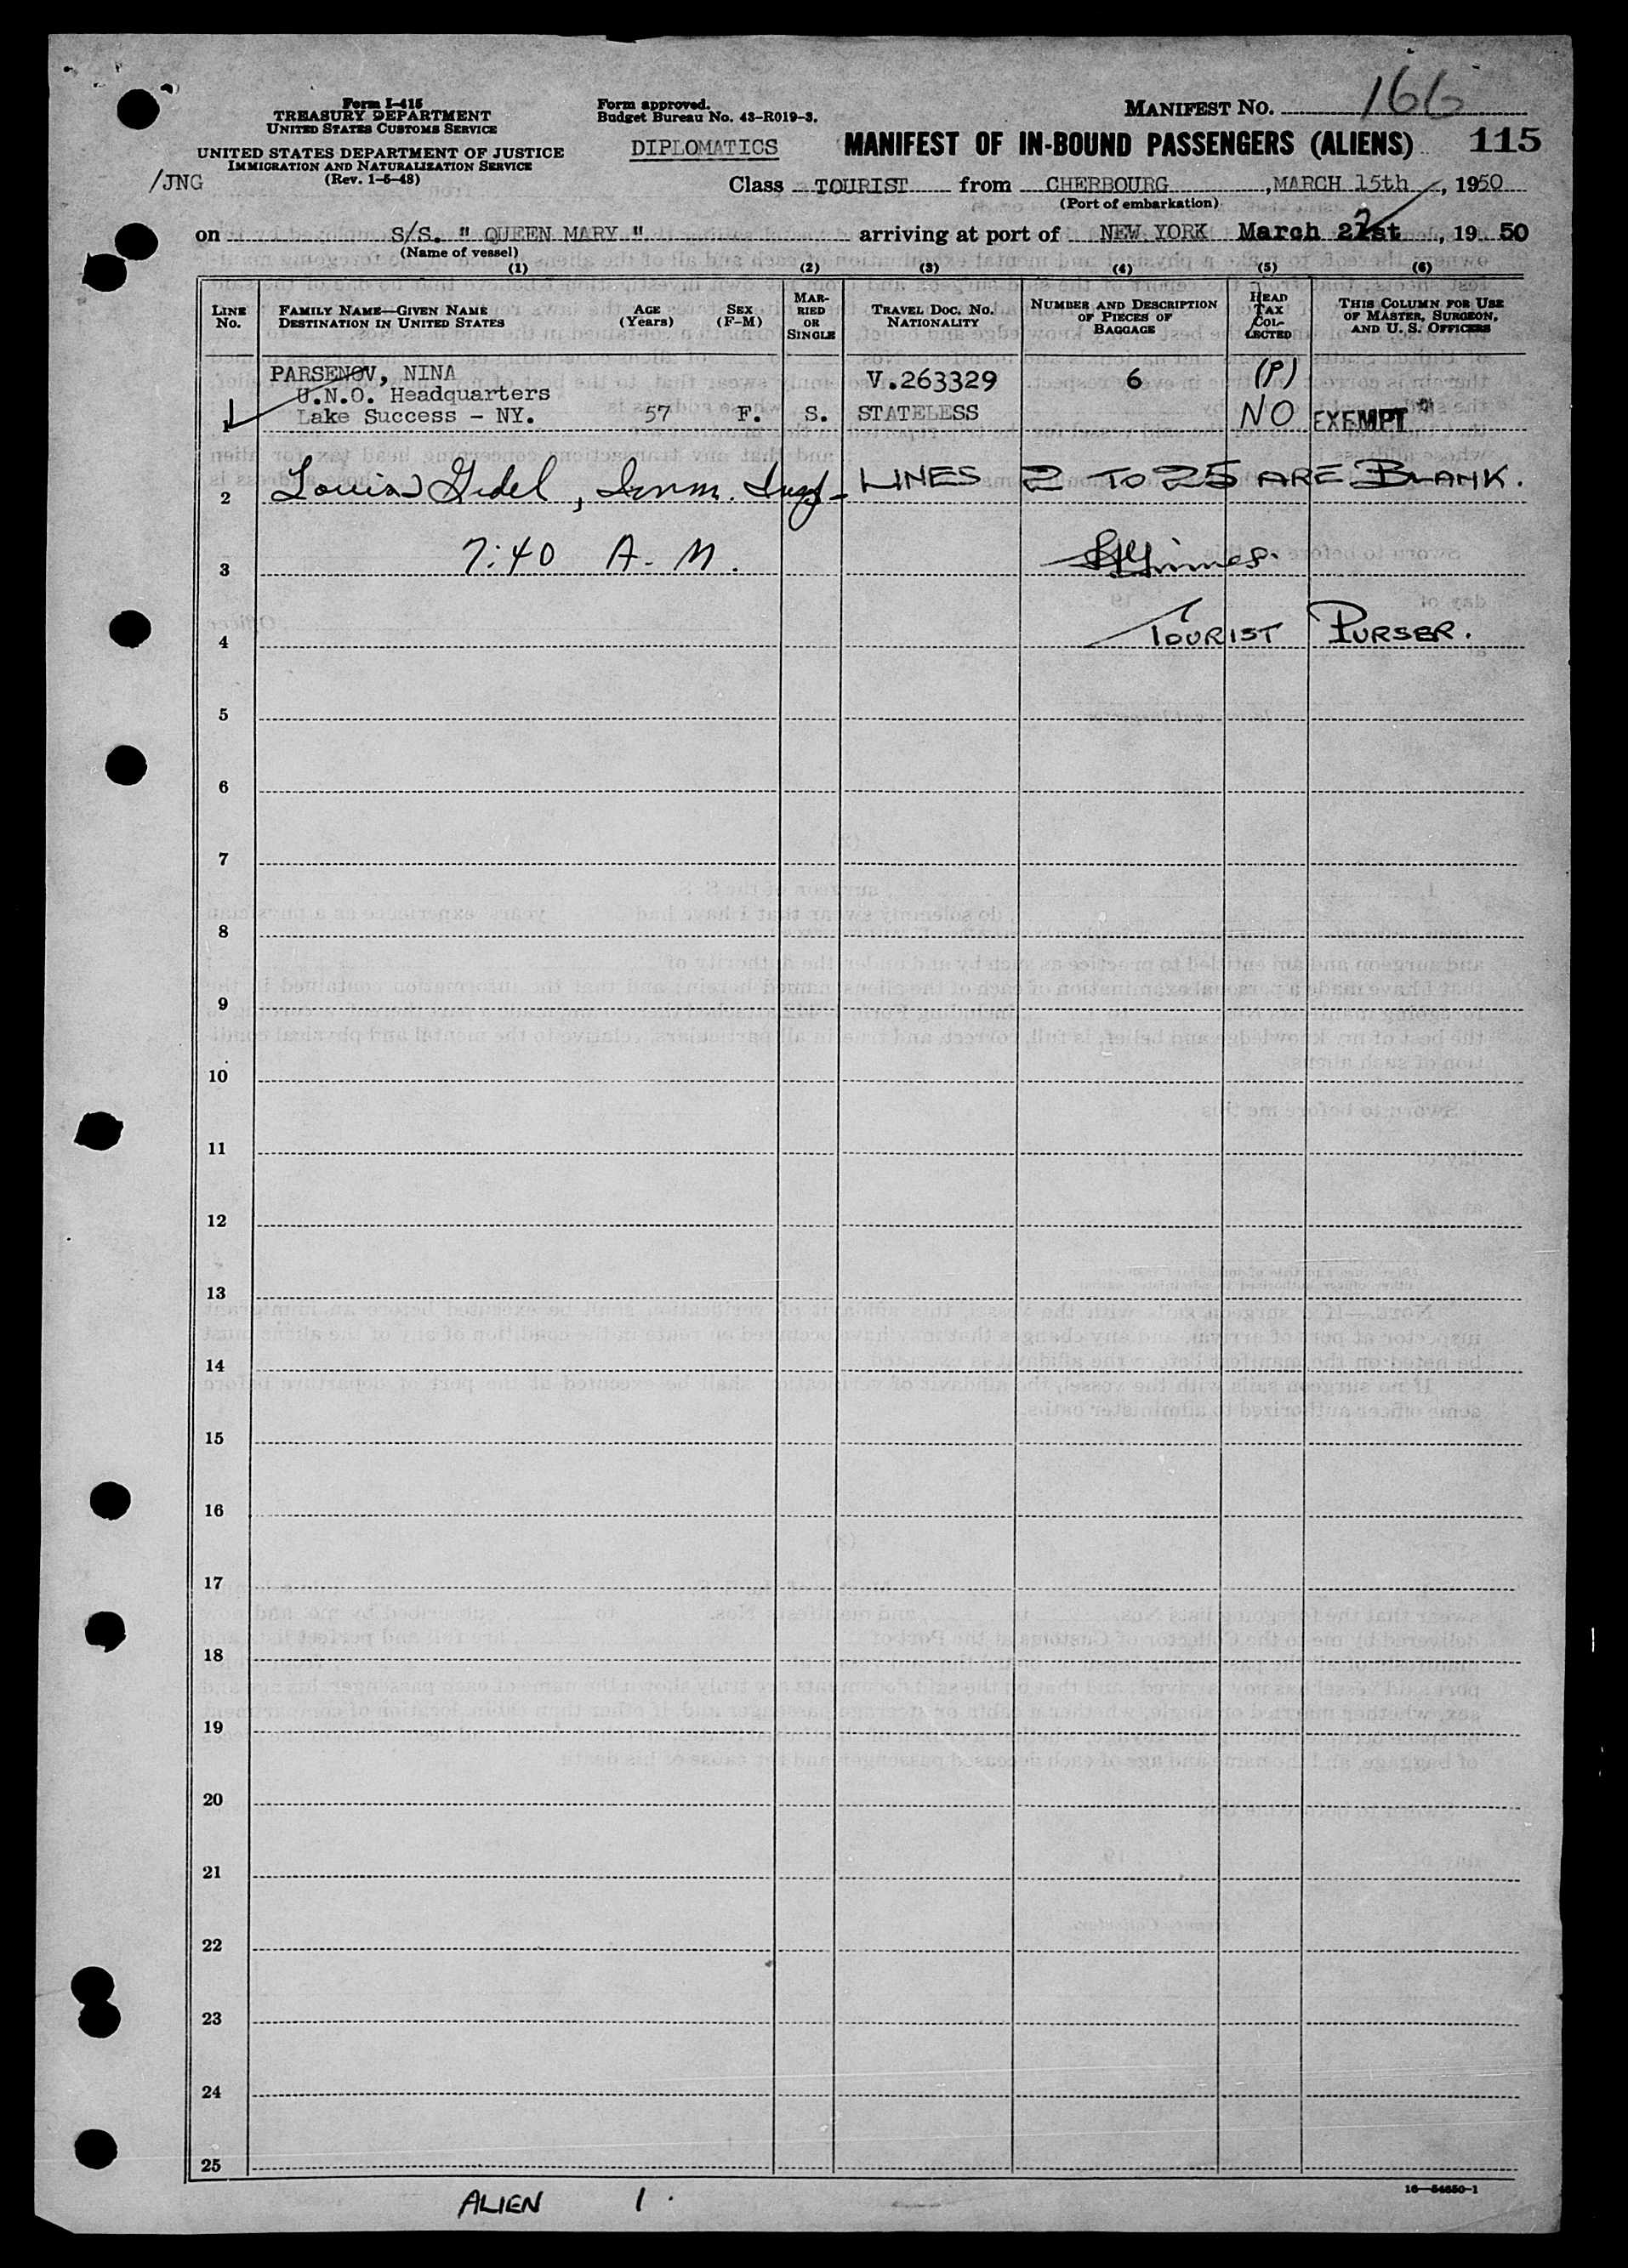 Form I-415
TREASURY DEPARTMENT
UNITED STATES CUSTOMS SERVICE
UNITED STATES DEPARTMENT OF JUSTICE
IMMIGRATION AND NATURALIZATION SERVICE
(Rev. 1-5-48)
/JNG
Form approved.
Budget Bureau No. 43-R019-3.
DIPLOMATICS
MANIFEST NO. 166
MANIFEST OF IN-BOUND PASSENGERS (ALIENS) 115
Class TOURIST from CHERBOURG, MARCH 15th, 1950
(Port of embarkation)
on S/S. " QUEEN MARY " arriving at port of NEW YORK March 21st, 1950
(Name of vessel)
(1) (2) (3) (4) (5) (6)
LINE No. FAMILY NAME—GIVEN NAME DESTINATION IN UNITED STATES AGE (Years) SEX (F-M) MARRIED OR SINGLE TRAVEL DOC. NO. NATIONALITY NUMBER AND DESCRIPTION OF PIECES OF BAGGAGE HEAD TAX COLLECTED THIS COLUMN FOR USE OF MASTER, SURGEON, AND U. S. OFFICERS
PARSENOV, NINA V.263329 6 (P)
U.N.O. Headquarters
1 Lake Success - NY. 57 F. S. STATELESS NO EXEMPT
2 Louis Gidel, Imm. Insp- LINES 2 TO 25 ARE BLANK.
3 7:40 A. M.
4 TOURIST PURSER.
5
6
7
8
9
10
11
12
13
14
15
16
17
18
19
20
21
22
23
24
25
16—54650-1
ALIEN 1.